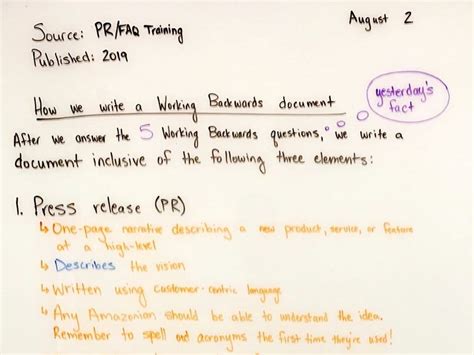 August 2
Source: PR/FAQ Training
Published: 2019
How we write a Working Backwards document
yesterday's
fact
After we answer the 5 Working Backwards questions, we write a
document inclusive of the following three elements:
1. Press release (PR)
↳ One-page narrative describing a new product, service, or feature
at a high-level
↳ Describes the vision
↳ Written using customer-centric language
↳ Any Amazonian should be able to understand the idea.
Remember to spell out acronyms the first time they're used!